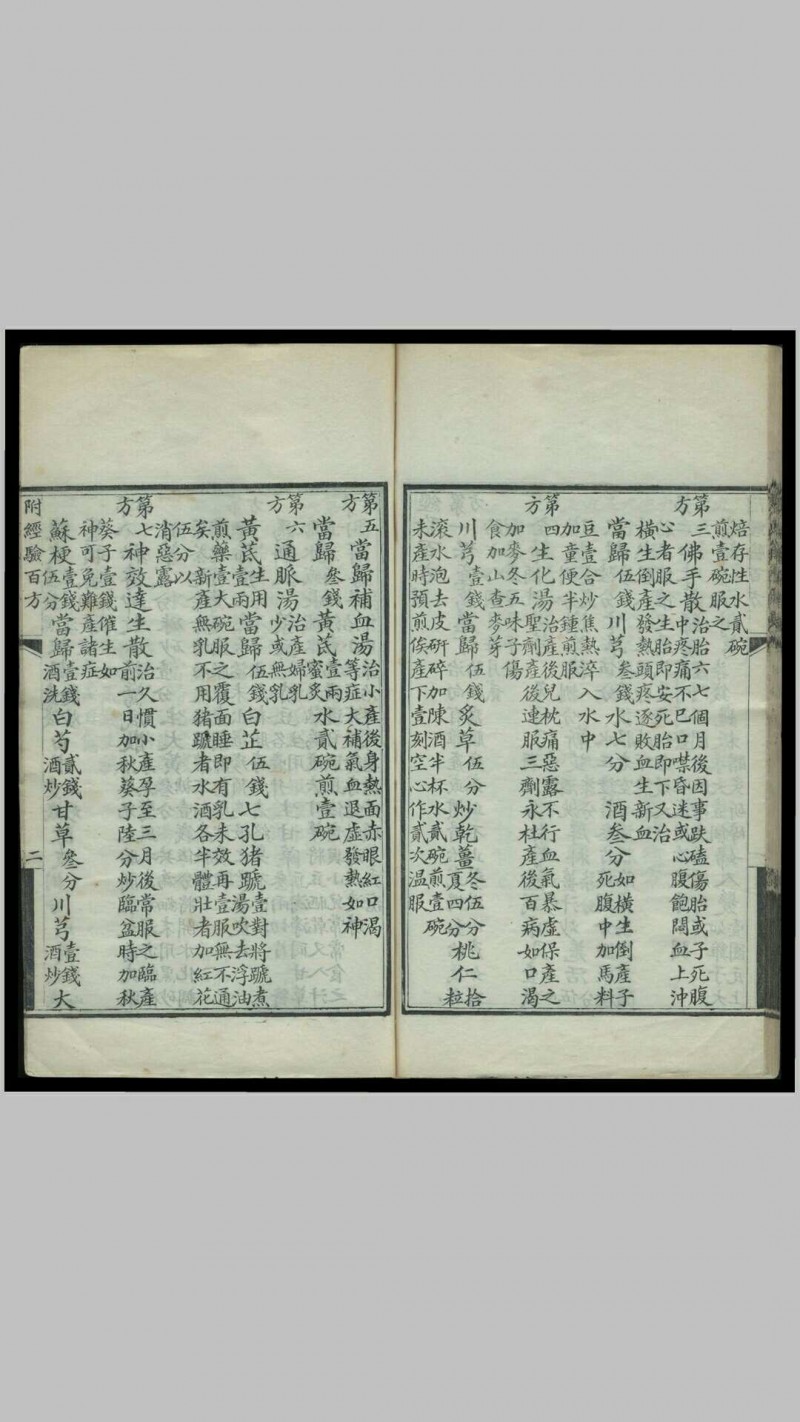 焙存性水貳碗
煎壹碗服之
第三方 佛手散 治胎六七個月後因事跌磕傷胎或子死腹
中疼痛不已口噤昏迷或心腹飽悶血上沖
心者服之生胎即安死胎即下又治
橫生倒產發熱頭疼逐敗血生新血
當歸伍錢川芎叁錢水七分酒叁分如橫生倒產子
死腹中加馬料
豆壹合炒焦熱淬入水中
加童便半鍾煎服
第四方 生化湯 治產後兒枕痛惡露不行血氣暴虛保產之
聖劑產後連服三劑永杜產後百病如口渴
加麥冬五味子傷
食加山查麥芽
川芎壹錢當歸伍錢炙草伍分炒乾薑冬伍分夏四分桃仁拾粒
滾水泡去皮研碎加陳酒半杯水貳碗煎壹碗
未產時預煎俟產下壹刻空心作貳次温服
第五方 當歸補血湯 治小產後身熱面赤眼紅口渴
等症大補氣血退虛發熱如神
當歸叁錢黃芪壹兩蜜炙水貳碗煎壹碗
第六方 通脈湯 治產婦乳少或無乳
黃芪生用壹兩當歸伍錢白芷伍錢七孔猪蹏壹對將蹏煮
湯吹去浮油
煎藥壹大碗服之覆面睡即有乳未效再壹服無不通
矣新產無乳不用猪蹏者水酒各半體壯者加紅花
伍分以
消惡露
第七方 神效達生散 治久慣小產孕至三月後常服之臨產
前一日加秋葵子陸分炒臨盆時加秋
葵子壹錢催生如
神可免難產諸症
蘇梗壹錢伍分當歸壹錢酒洗白芍貳錢酒炒甘草叁分川芎壹錢酒炒大
附經驗百方 二